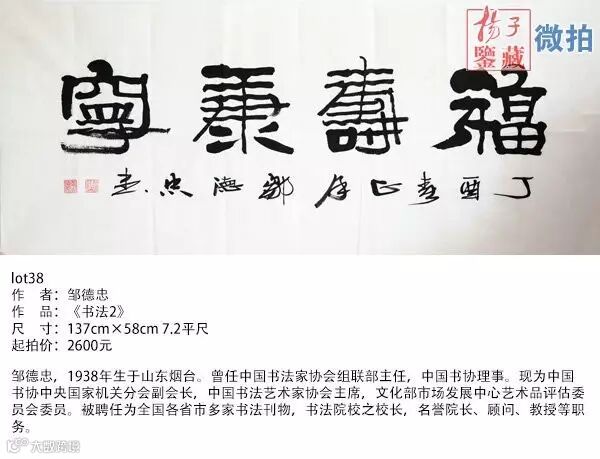 揚子
鑒藏
微拍
福壽康寧
丁酉春正月鄒德忠書
lot38
作　者：邹德忠
作　品：《书法2》
尺　寸：137cm×58cm 7.2平尺
起拍价：2600元
邹德忠，1938年生于山东烟台。曾任中国书法家协会组联部主任，中国书协理事。现为中国
书协中央国家机关分会副会长，中国书法艺术家协会主席，文化部市场发展中心艺术品评估委
员会委员。被聘任为全国各省市多家书法刊物，书法院校之校长，名誉院长、顾问、教授等职
务。
大数跨境